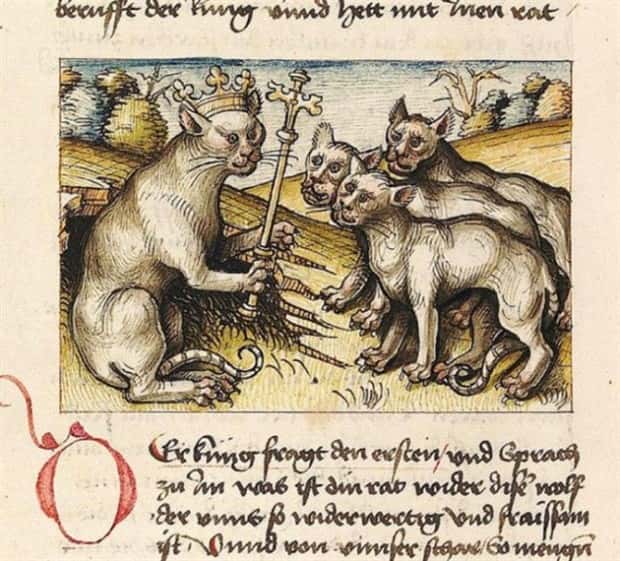 berufft der kung vnnd hett mit Jnen rat
DEr kung fragt den ersten / vnd Sprach
zu Jm was ist din rat wider dise wolf
der vnns so widerwertig vnd fraissam
ist / Vnnd von vnnser schar / So mengen